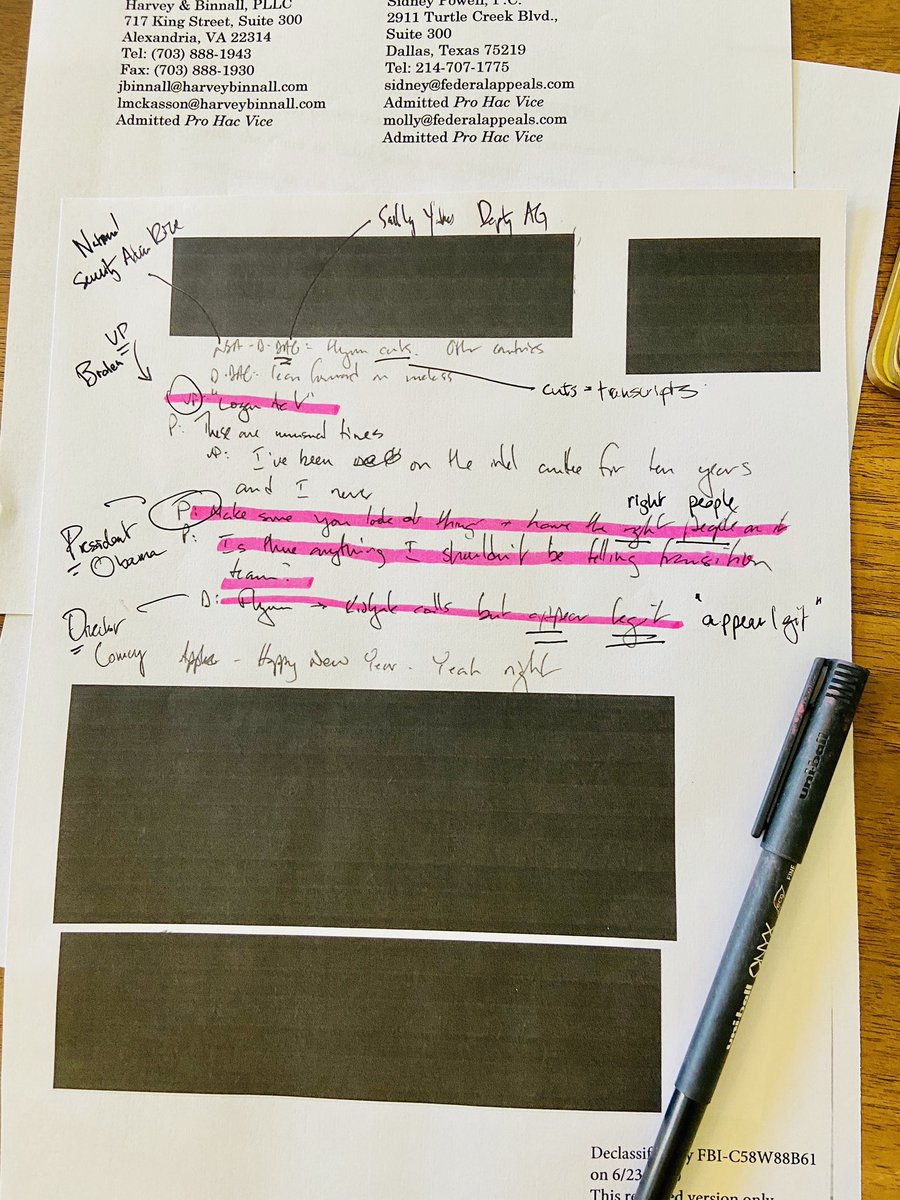 Harvey & Binnall, PLLC
717 King Street, Suite 300
Alexandria, VA 22314
Tel: (703) 888-1943
Fax: (703) 888-1930
jbinnall@harveybinnall.com
lmckasson@harveybinnall.com
Admitted Pro Hac Vice
Sidney Powell, P.C.
2911 Turtle Creek Blvd.,
Suite 300
Dallas, Texas 75219
Tel: 214-707-1775
sidney@federalappeals.com
Admitted Pro Hac Vice
molly@federalappeals.com
Admitted Pro Hac Vice
National
Security Rice
Sally Yates Depty AG
NSA-D-DAG: Flynn cuts. Other countries
D-DAG: lean forward on
cuts = transcripts
VP
VP: "Logan Act"
P: These are unusual times
VP: I've been on the intel for ten years
and I never
right people
P: Make sure you look at things + have the right people on it
President
Obama
P: Is there anything I shouldn't be telling transition
team?
D: Flynn → Kislyak calls but appear legit
"appear legit"
Director
Comey
- Happy New Year. Yeah right
uniball
FINE
uniball ONYX
Declassified by FBI-C58W88B61
on 6/23
This version only